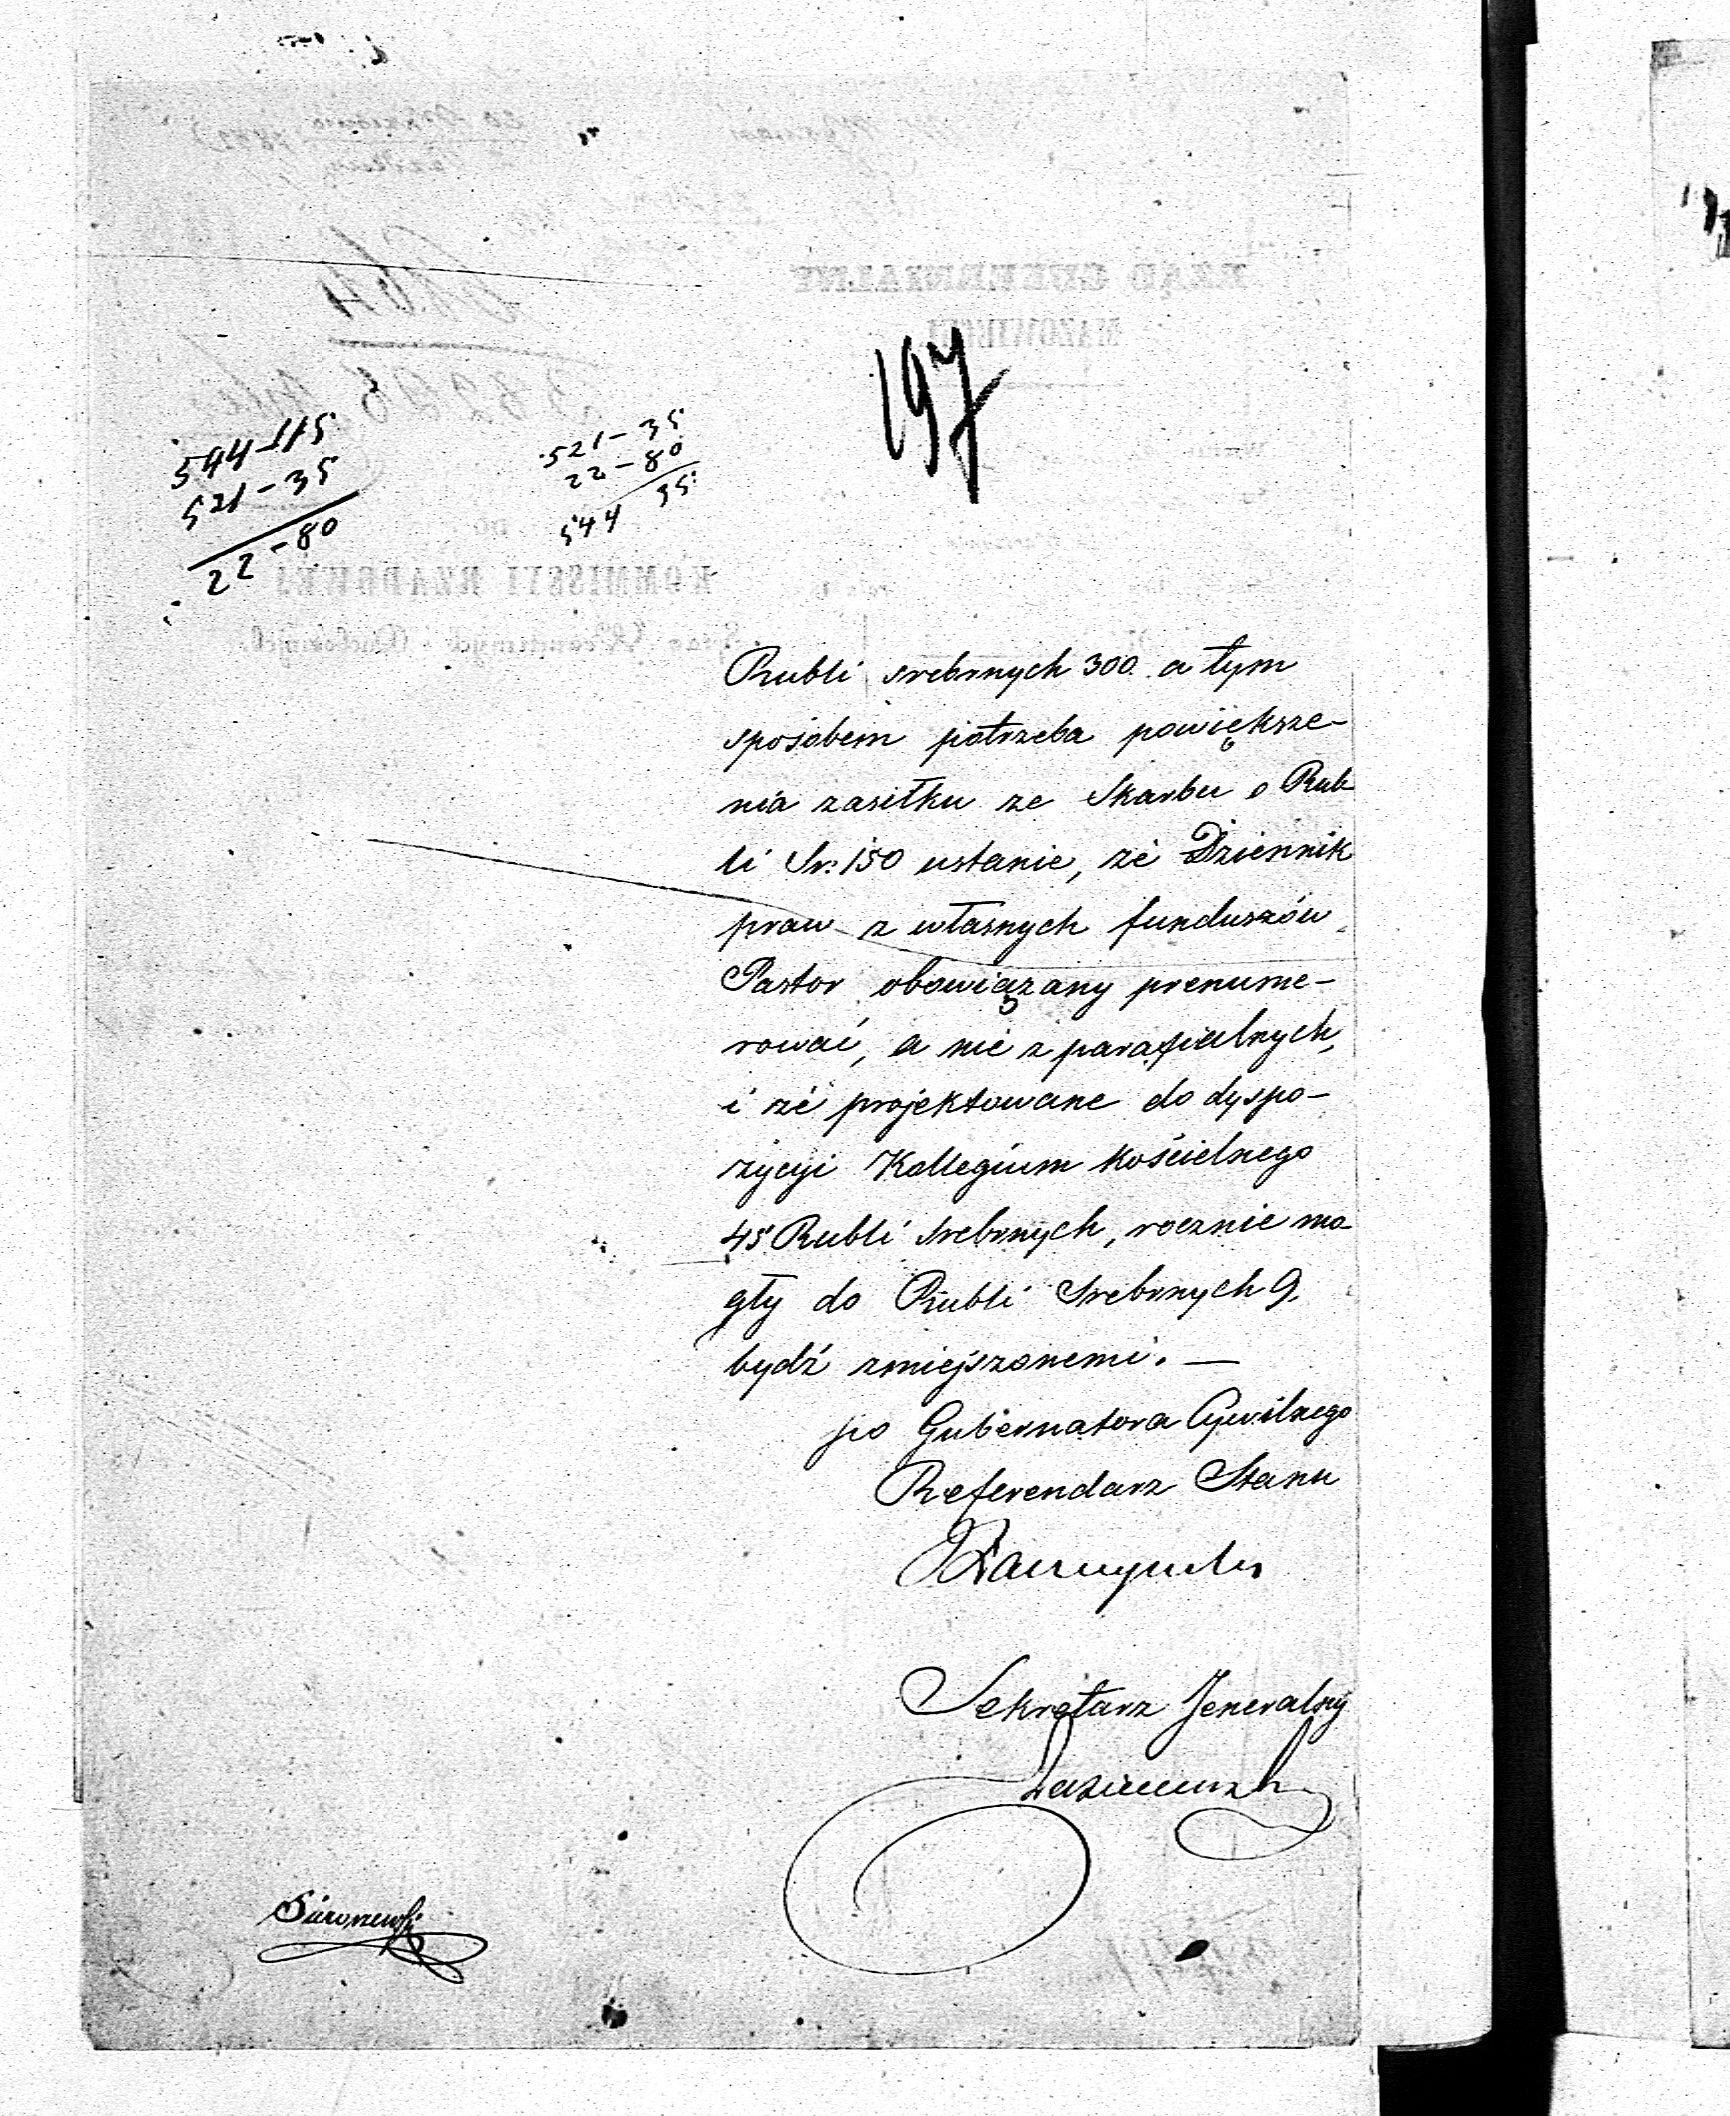 197
544-115
521-35
22-80
521-35
22-80
544 35
Rubli srebrnych 300. a tym
sposobem potrzeba powiększe-
nia zasiłku ze Skarbu o Rub
li Sr: 150 ustanie, że Dziennik
praw z własnych funduszów
Pastor obowiązany prenume-
rować, a nie z parafialnych,
i że projektowane do dyspo-
zycyi Kollegium kościelnego
45 Rubli srebrnych, rocznie mo-
gły do Rubli Srebrnych 9.
bydź zmiejszonemi. —
po Gubernatora Cywilnego
Referendarz Stanu
Sekretarz Jeneralny